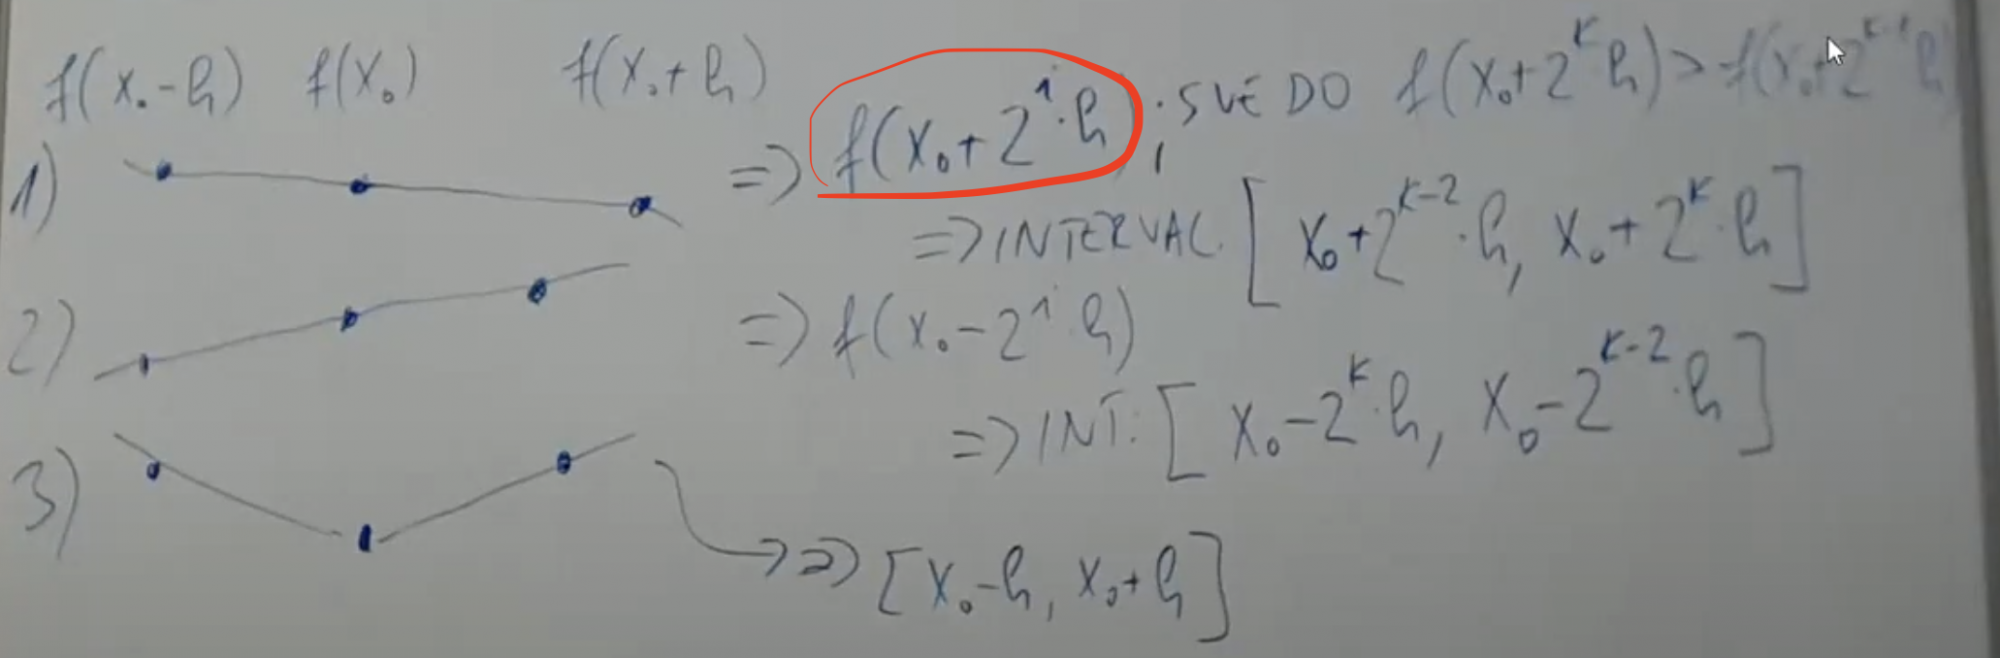 f(x₀-h) f(x₀) f(x₀+h)
1) => f(x₀+2ⁱ·h) ; SVE DO f(x₀+2ᵏh) > f(x₀+2ᵏ⁻¹h)
=> INTERVAL [x₀+2ᵏ⁻²·h, x₀+2ᵏ·h]
2) => f(x₀-2ⁱ·h)
=> INT: [x₀-2ᵏ·h, x₀-2ᵏ⁻²·h]
3) => [x₀-h, x₀+h]